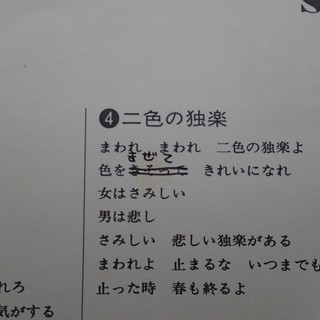 S
❹二色の独楽
まわれ　まわれ　二色の独楽よ
まぜて
色をきそって　きれいになれ
女はさみしい
男は悲し
さみしい　悲しい独楽がある
まわれよ　止まるな　いつまでも
止った時　春も終るよ
れろ
気がする